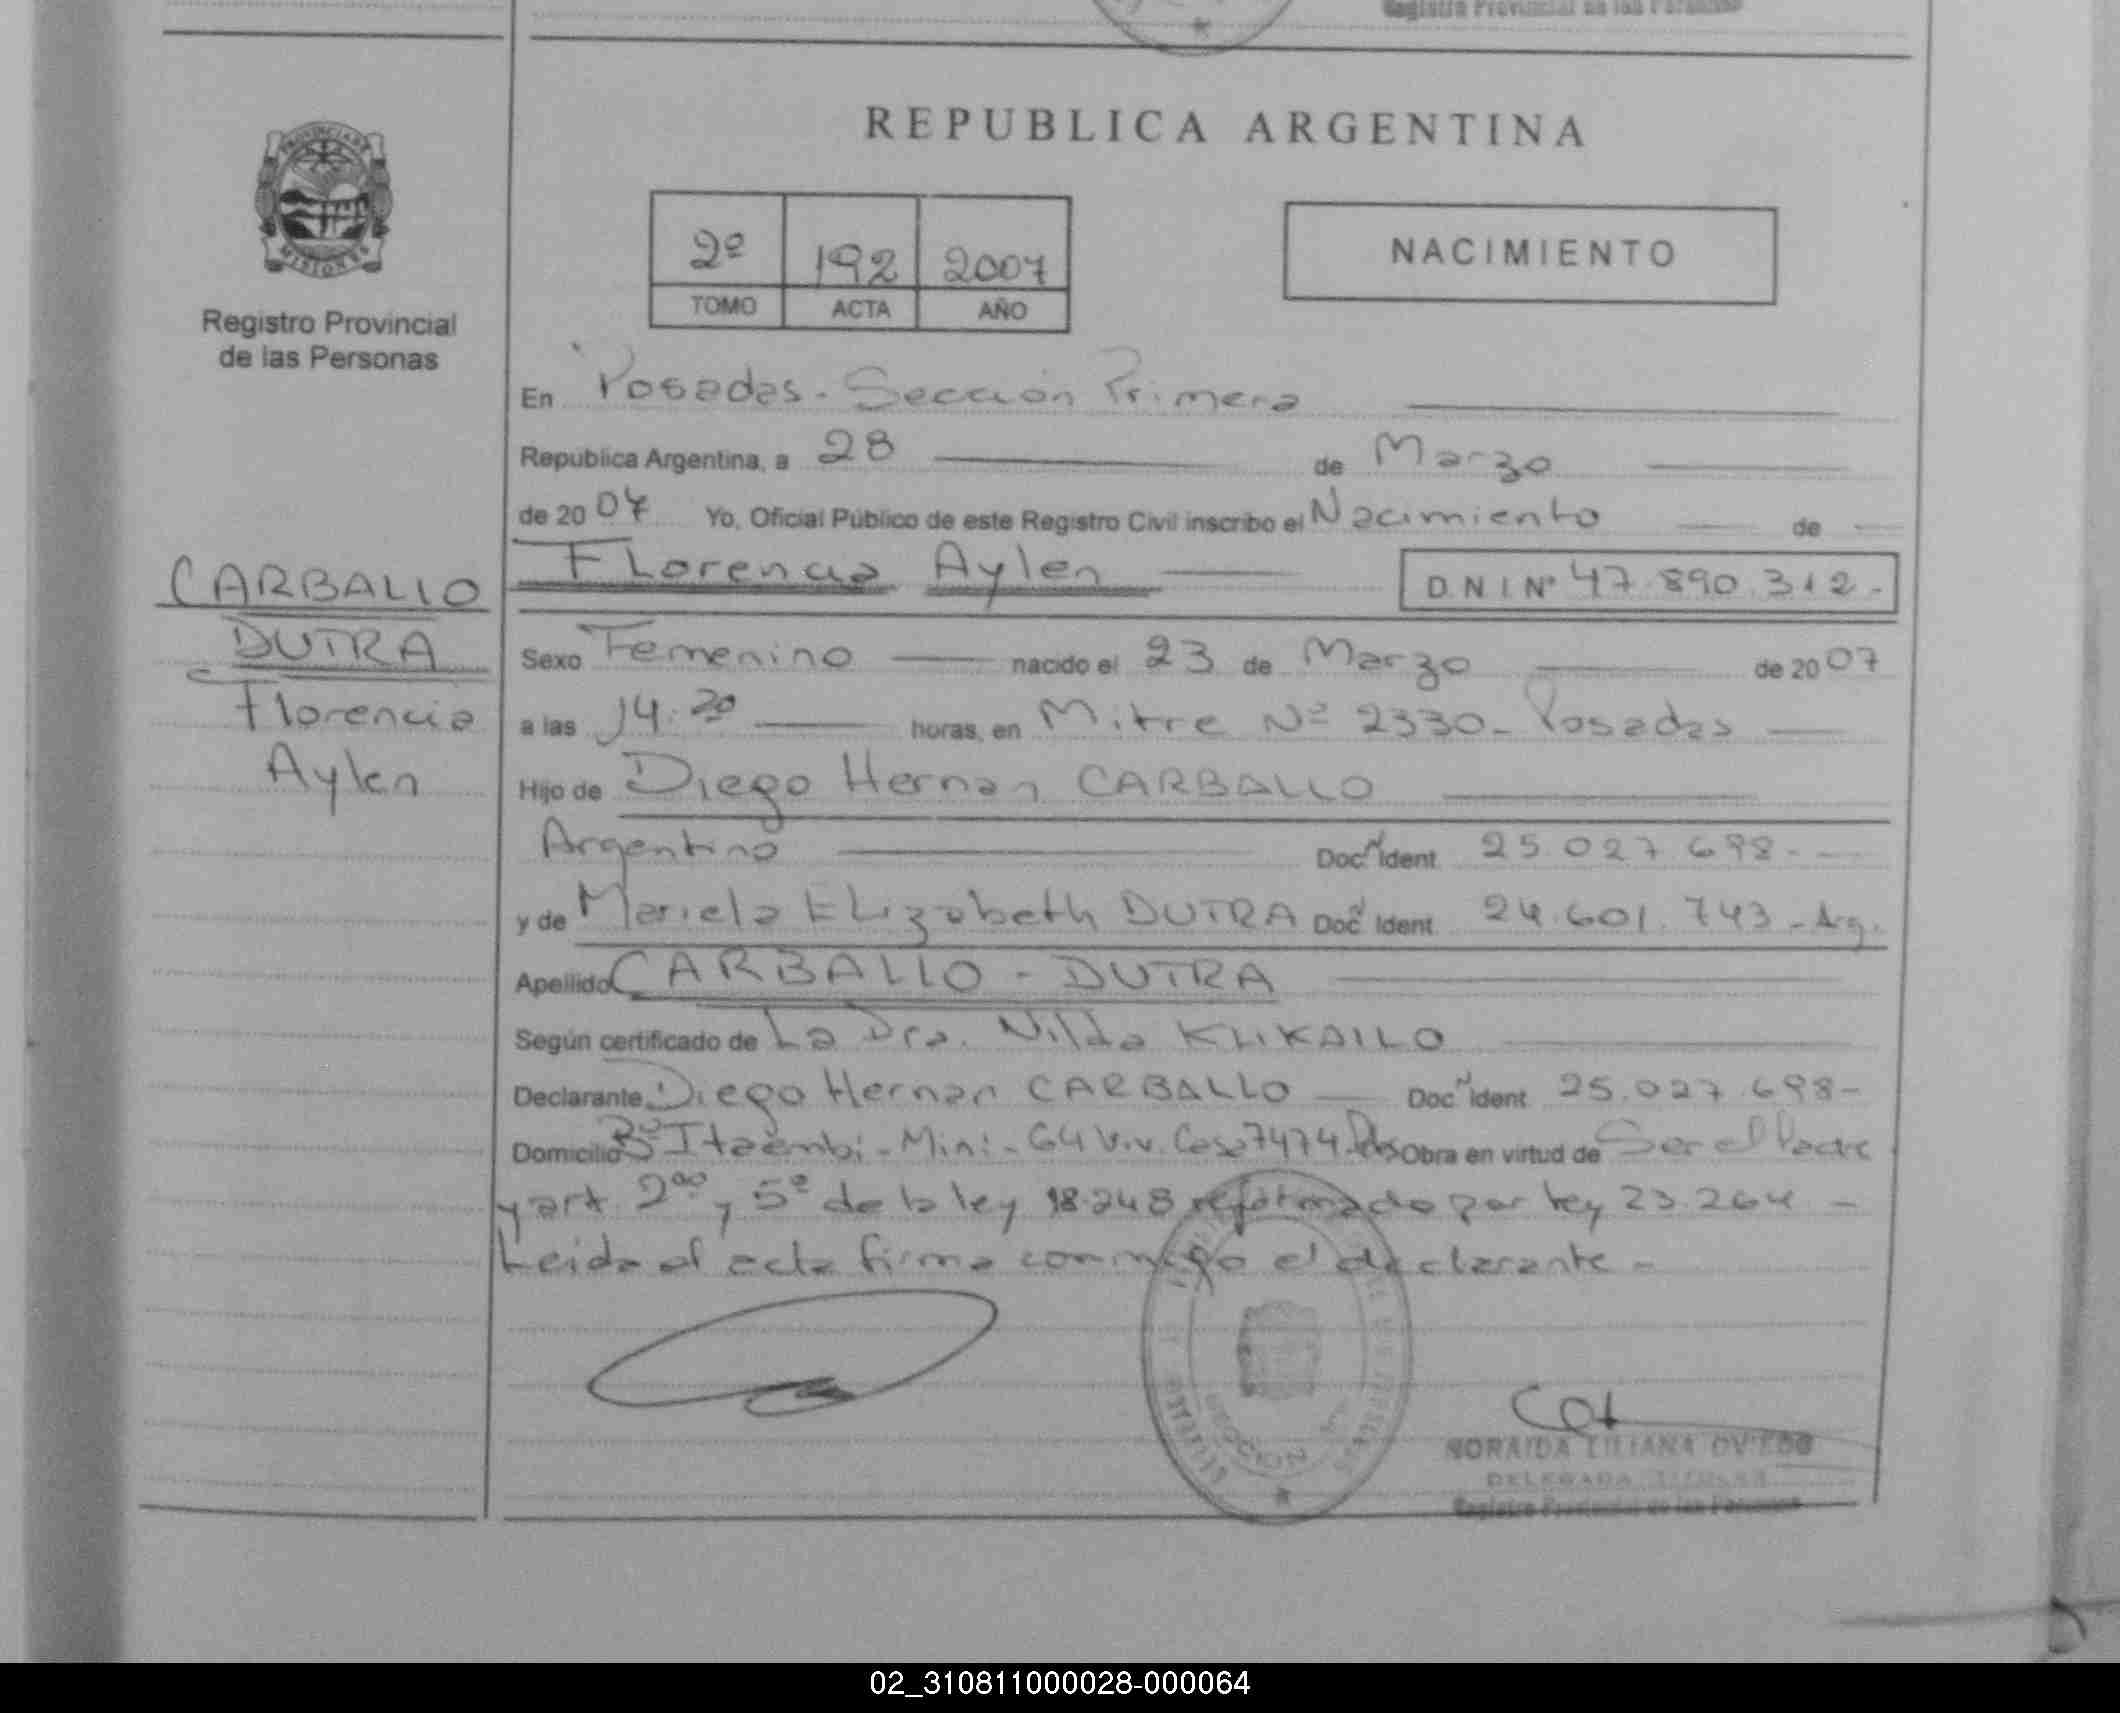 Registro Provincial de las Personas
REPUBLICA ARGENTINA
PROVINCIA DE
MISIONES
Registro Provincial
de las Personas
2º 192 2007
TOMO ACTA AÑO
NACIMIENTO
En Posadas - Sección Primera
Republica Argentina, a 28 de Marzo
de 2007 Yo, Oficial Público de este Registro Civil inscribo el Nacimiento de
Florencia Aylen D.N.I Nº 47.890.312.-
CARBALLO
DUTRA
Florencia
Aylen
Sexo Femenino nacido el 23 de Marzo de 2007
a las 14:20 horas, en Mitre Nº 2330 - Posadas
Hijo de Diego Hernan CARBALLO
Argentino Doc. Ident. 25.027.698.-
y de Mariela Elizabeth DUTRA Doc. Ident. 24.601.743 - Arg.
Apellido CARBALLO - DUTRA
Según certificado de La Dra. Nilda KLIKAILO
Declarante Diego Hernan CARBALLO Doc. Ident. 25.027.698-
Domicilio Bº Itaembi - Mini - 64 Viv. Casa 7474 Pdas Obra en virtud de Ser el Padre
y art. 2do y 5º de la ley 18.248 reformado por ley 23.264 -
Leida el acta firma conmigo el declarante -
NORAIDA LILIANA OVIEDO
DELEGADA TITULAR
Registro Provincial de las Personas
02_310811000028-000064